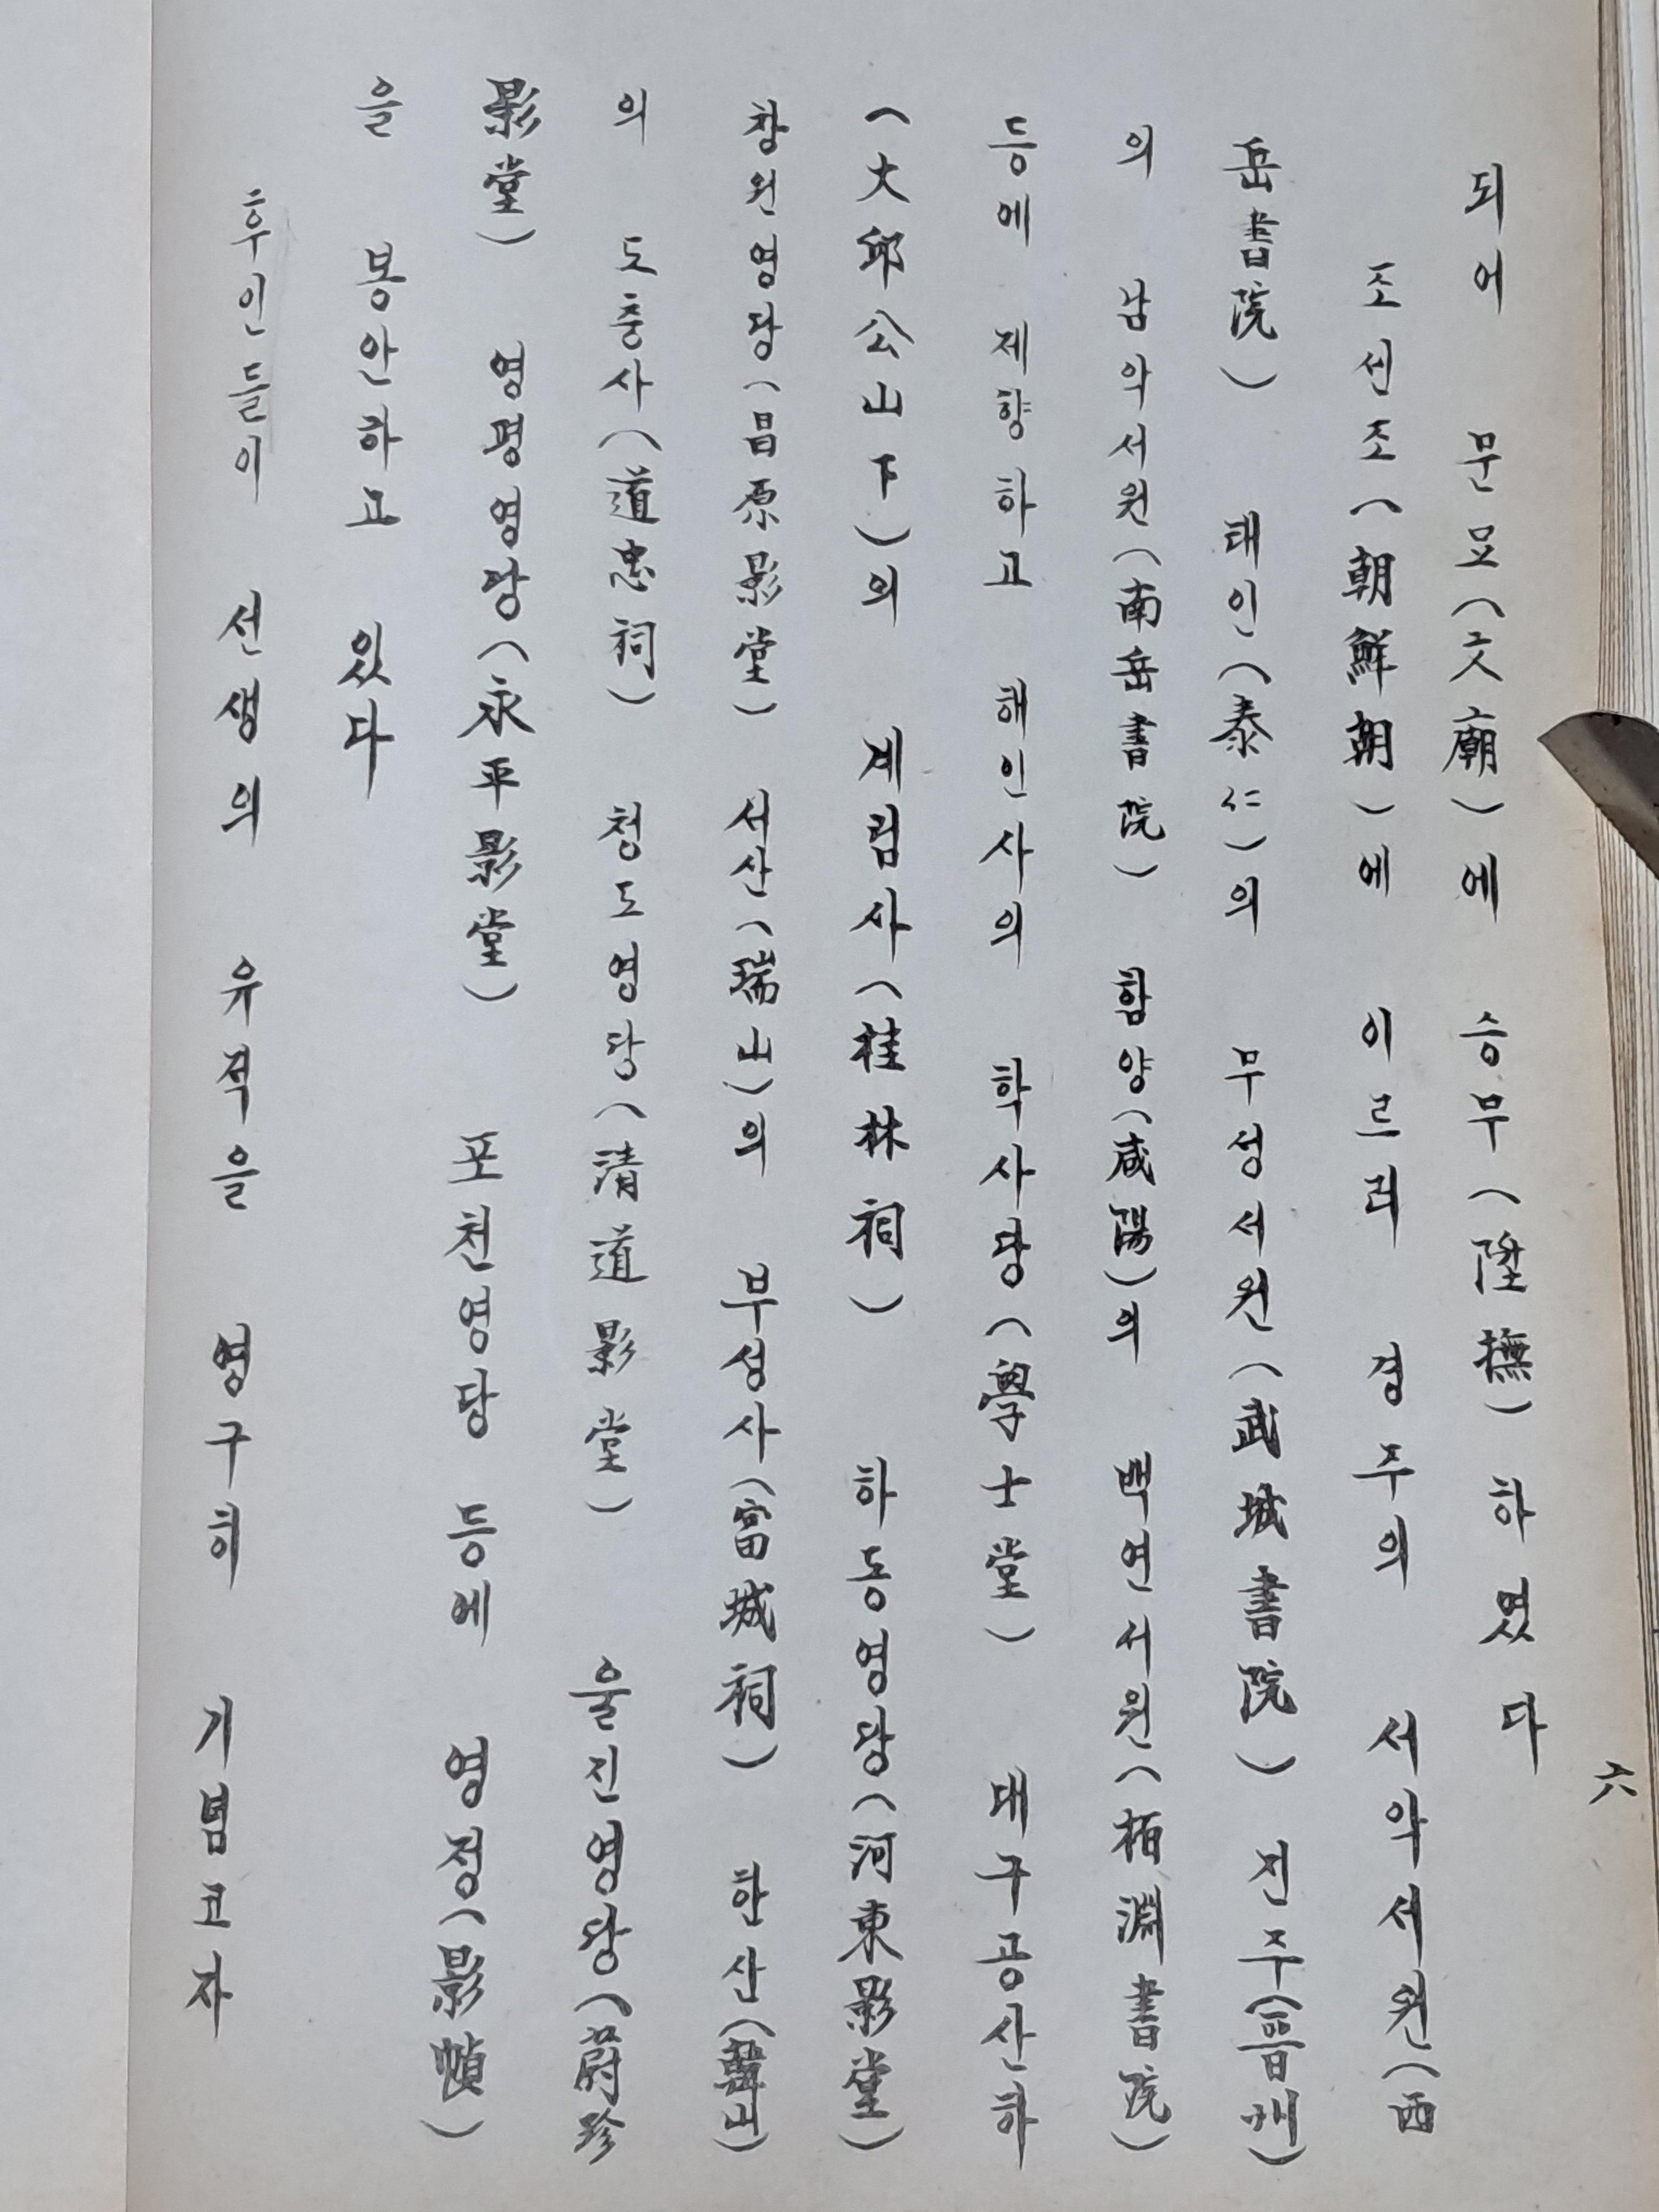 되어 문묘(文廟)에 승무(陞撫)하였다
조선조(朝鮮朝)에 이르러 경주의 서악서원(西
岳書院) 태인(泰仁)의 무성서원(武城書院) 진주(晋州)
의 남악서원(南岳書院) 함양(咸陽)의 백연서원(栢淵書院)
등에 제향하고 해인사의 학사당(學士堂) 대구공산하
(大邱公山下)의 계림사(桂林祠) 하동영당(河東影堂)
창원영당(昌原影堂) 서산(瑞山)의 부성사(富城祠) 한산(韓山)
의 도충사(道忠祠) 청도영당(清道影堂) 울진영당(蔚珍
影堂) 영평영당(永平影堂) 포천영당 등에 영정(影幀)
을 봉안하고 있다
후인들이 선생의 유적을 영구히 기념코자
六